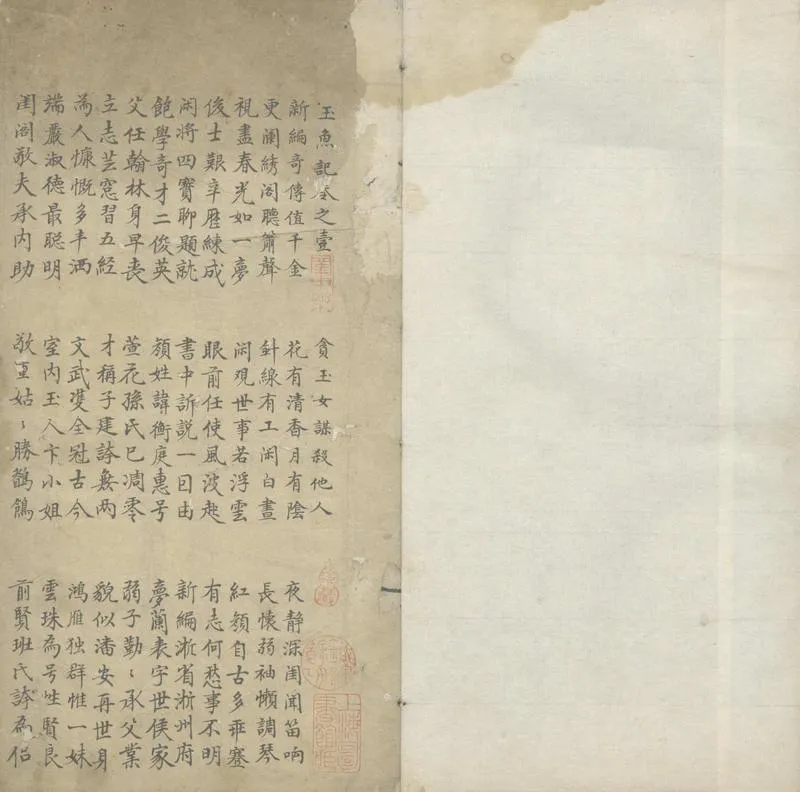 玉魚記全之壹 貪玉女謀殺他人
新編奇傳值千金 花有清香月有陰 夜静深闺闻笛响
更阑綉阁聽簫聲 針線有工闲白晝 長懷弱袖懶調琴
視盡春光如一夢 闲观世事若浮雲 紅顏自古多乖蹇
俊士艱辛歷練成 眼前任使風波起 有志何愁事不明
闲將四寶聊題就 書中訴説一曰由 新編淅省淅州府
飽學奇才二俊英 顏姓諱衡庭惠号 夢蘭表字世侯家
父任翰林身早丧 萱花孫氏已凋零 弱子勤〻承父業
立志芸窓習五經 才稱子建誇無两 貌似潘安再世身
為人慷慨多丰洒 文武雙全冠古今 鴻雁独群惟一妹
端嚴淑德最聪明 室内玉人卞小姐 雲珠為号性賢良
闺阁敬夫承内助 敬重姑〻勝鶺鴒 前賢班氏誇為侣
上海圖書館藏